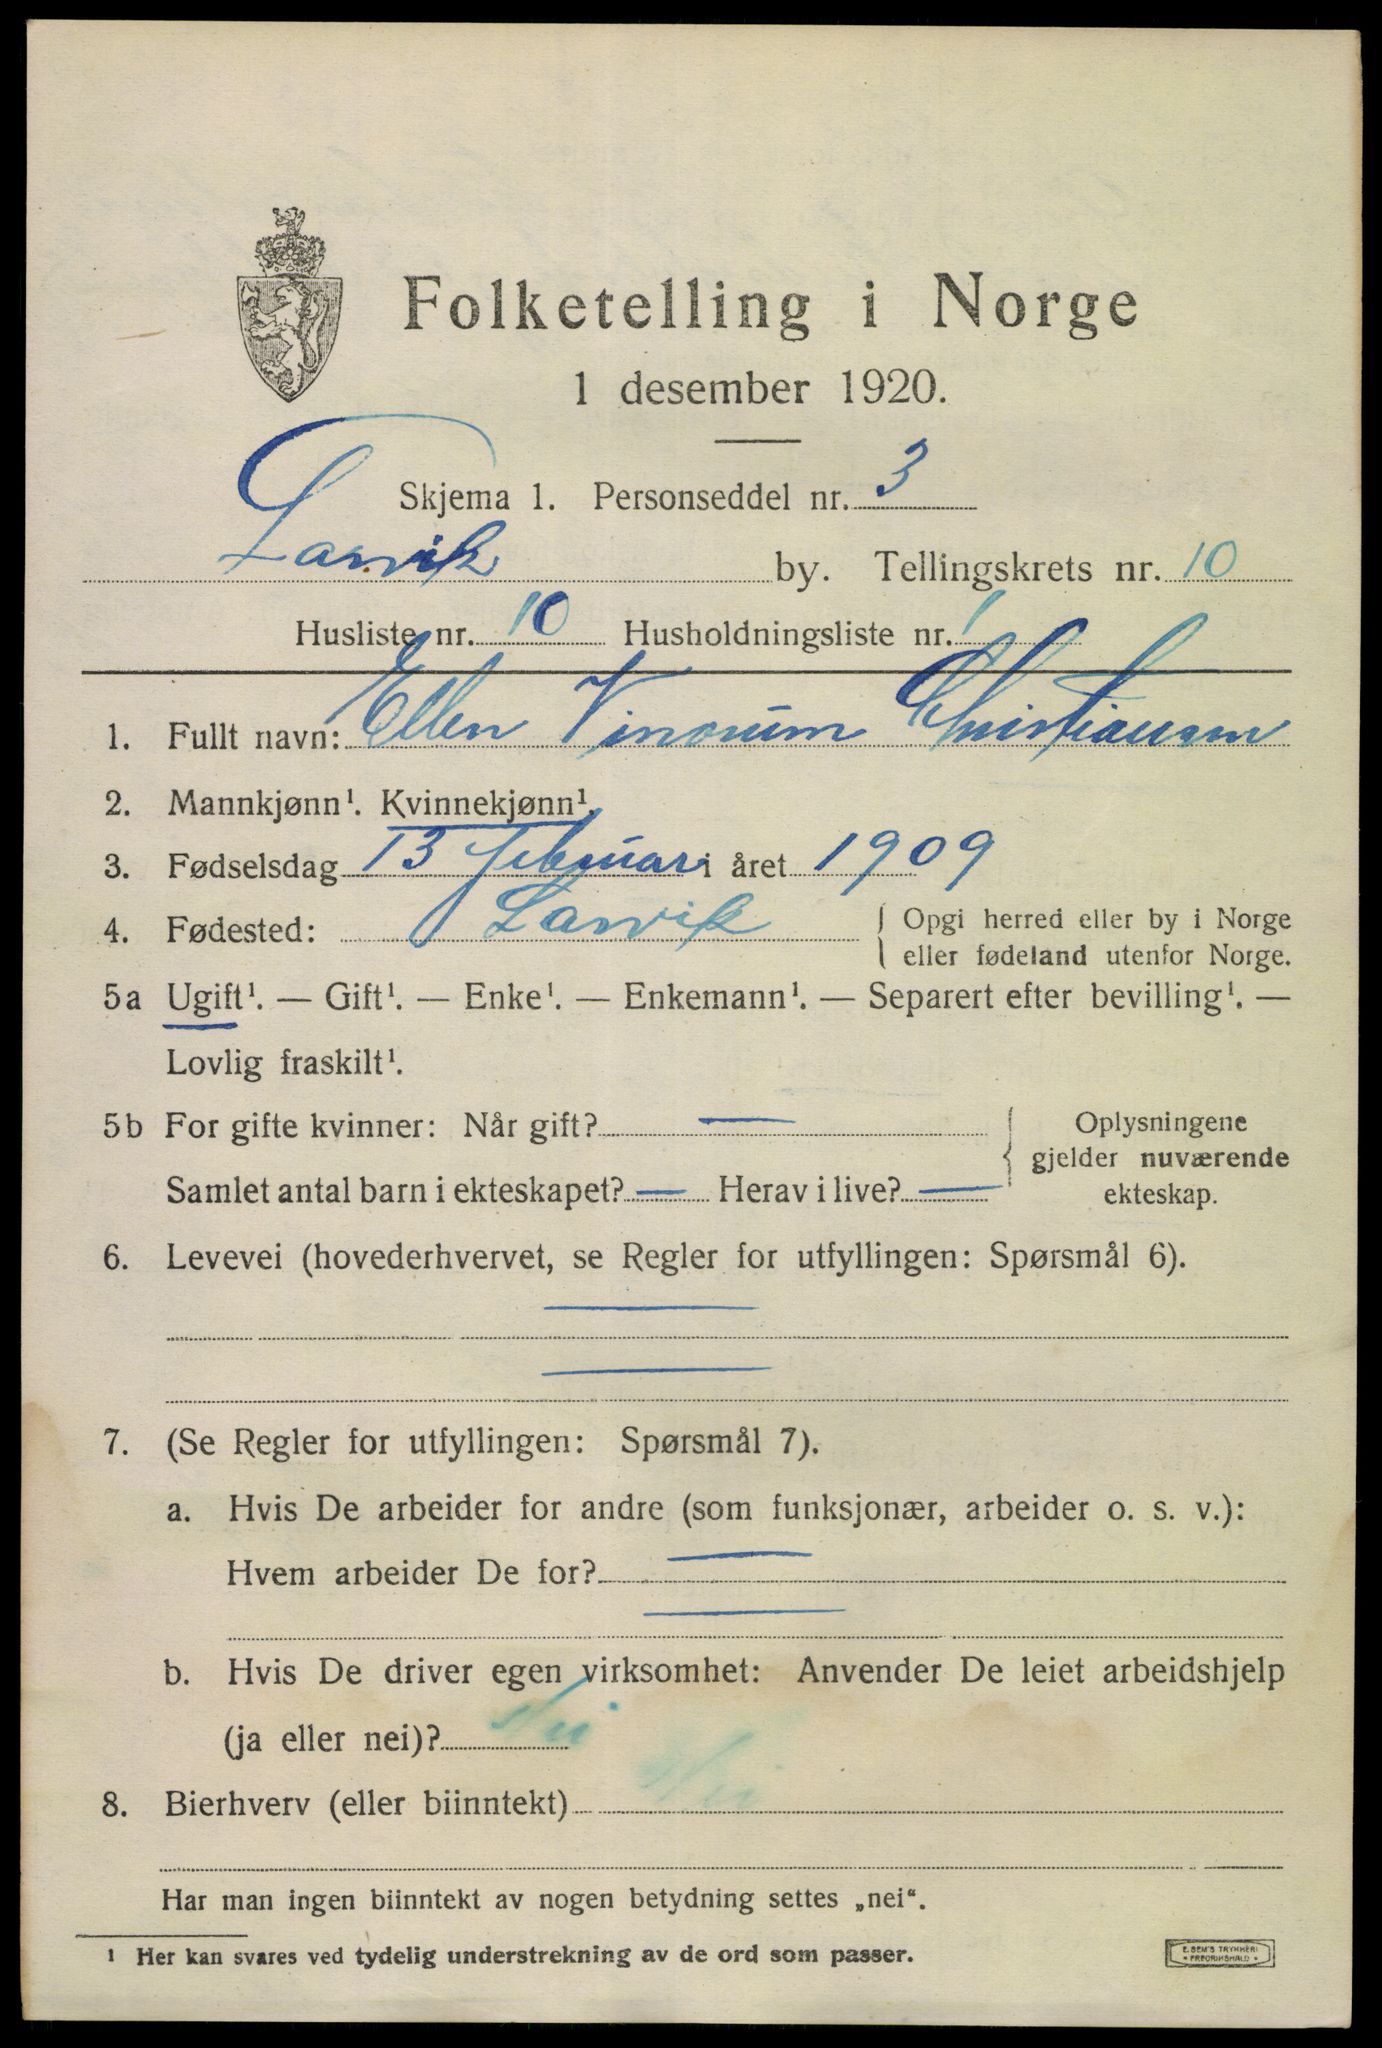 Folketelling i Norge
1 desember 1920.
Skjema 1. Personseddel nr. 3
Larvik by. Tellingskrets nr. 10
Husliste nr. 10 Husholdningsliste nr. 1
1. Fullt navn: Ellen Vinorum Christiansen
2. Mannkjønn¹. Kvinnekjønn¹.
3. Fødselsdag 13 februar i året 1909
4. Fødested: Larvik { Opgi herred eller by i Norge
eller fødeland utenfor Norge.
5a Ugift¹. — Gift¹. — Enke¹. — Enkemann¹. — Separert efter bevilling¹. —
Lovlig fraskilt¹.
5b For gifte kvinner: Når gift? — { Oplysningene
gjelder nuværende
Samlet antal barn i ekteskapet? — Herav i live? — ekteskap.
6. Levevei (hovederhvervet, se Regler for utfyllingen: Spørsmål 6).
—
—
7. (Se Regler for utfyllingen: Spørsmål 7).
a. Hvis De arbeider for andre (som funksjonær, arbeider o. s. v.):
Hvem arbeider De for? —
—
b. Hvis De driver egen virksomhet: Anvender De leiet arbeidshjelp
(ja eller nei)? Nei
8. Bierhverv (eller biinntekt) Nei
Har man ingen biinntekt av nogen betydning settes „nei“.
¹ Her kan svares ved tydelig understrekning av de ord som passer.
E. SEM'S TRYKKERI
• FREDRIKSHALD •